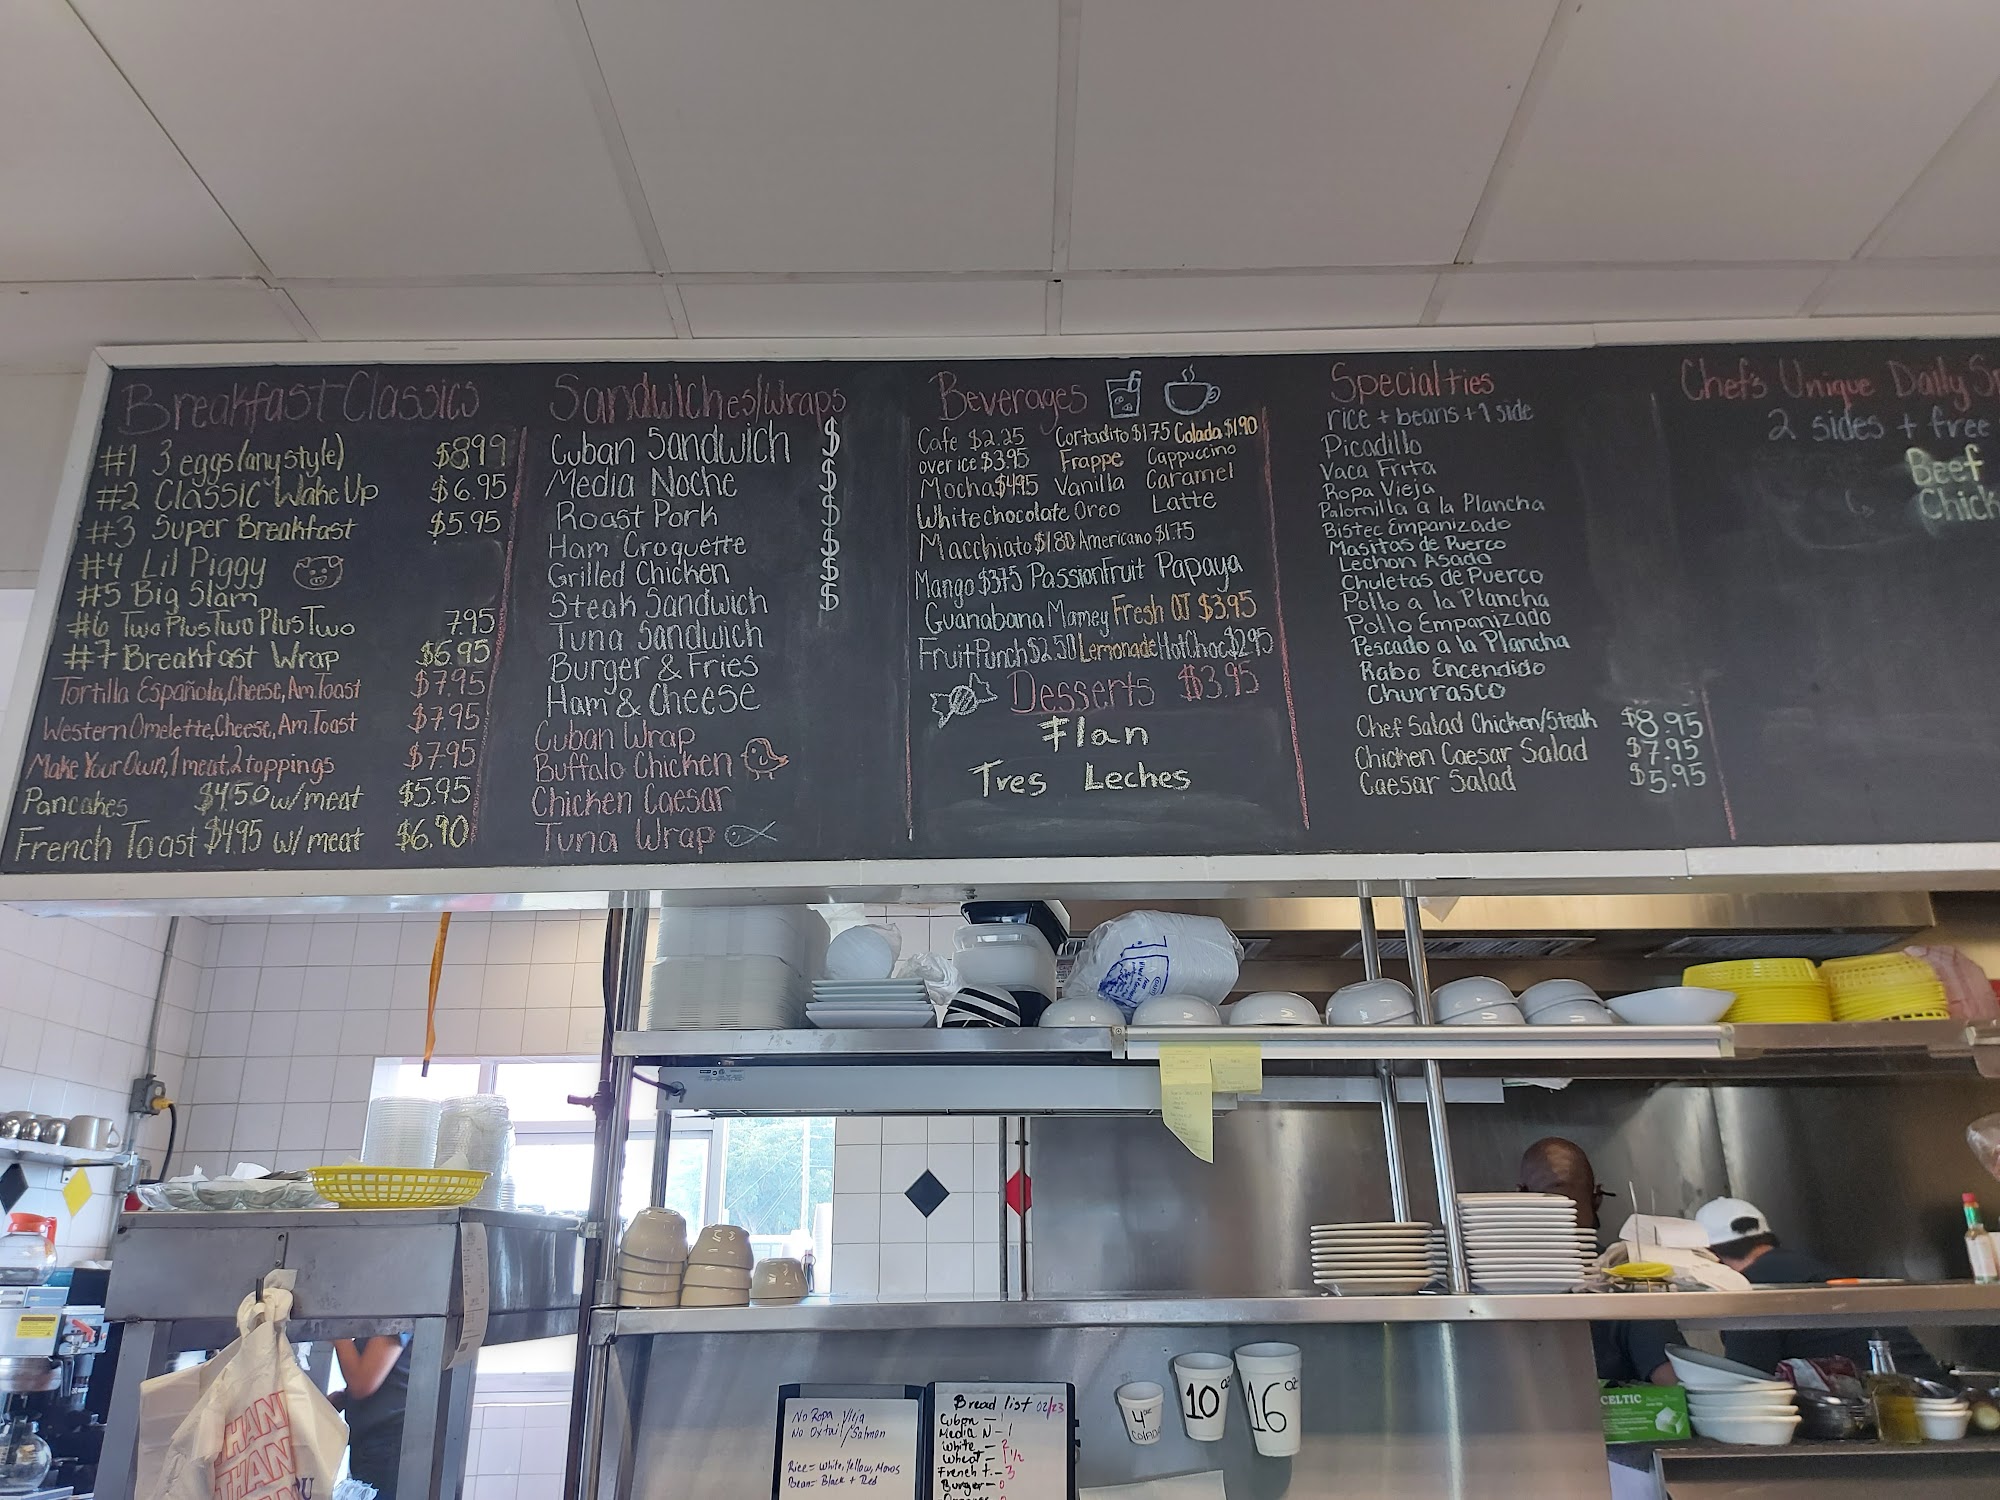 Breakfast Classics
#1 3 eggs (any style) $8.99
#2 Classic Wake Up $6.95
#3 Super Breakfast $5.95
#4 Lil Piggy
#5 Big Slam
#6 Two Plus Two Plus Two 7.95
#7 Breakfast Wrap $6.95
Tortilla Española, Cheese, Am. Toast $7.95
Western Omelette, Cheese, Am. Toast $7.95
Make Your Own, 1 meat, 2 toppings $7.95
Pancakes $4.50 w/meat $5.95
French Toast $4.95 w/ meat $6.90
Sandwiches/Wraps
Cuban Sandwich $
Media Noche $
Roast Pork $
Ham Croquette $
Grilled Chicken $
Steak Sandwich $
Tuna Sandwich
Burger & Fries
Ham & Cheese
Cuban Wrap
Buffalo Chicken
Chicken Caesar
Tuna Wrap
Beverages
Cafe $2.25 Cortadito $1.75 Colada $1.90
over ice $3.95 Frappe Cappuccino
Mocha $4.95 Vanilla Caramel
White chocolate Oreo Latte
Macchiato $1.80 Americano $1.75
Mango $3.75 Passion Fruit Papaya
Guanabana Mamey Fresh OJ $3.95
Fruit Punch $2.50 Lemonade Hot Choc $2.95
Desserts $3.95
Flan
Tres Leches
Specialties
rice + beans + 1 side
Picadillo
Vaca Frita
Ropa Vieja
Palomilla a la Plancha
Bistec Empanizado
Masitas de Puerco
Lechon Asado
Chuletas de Puerco
Pollo a la Plancha
Pollo Empanizado
Pescado a la Plancha
Rabo Encendido
Churrasco
Chef Salad Chicken/Steak $8.95
Chicken Caesar Salad $7.95
Caesar Salad $5.95
Chef's Unique Daily
2 sides + free
Beef
4 oz
Colada
10 oz
16 oz
CELTIC
No Ropa Vieja
No Oxtail/Salmon
Rice= White, Yellow, Moros
Bean= Black + Red
Bread list 02/23
Cuban — 1
Media N — 1
White — 2
Wheat — 1 1/2
French t. — 3
Burger — 0